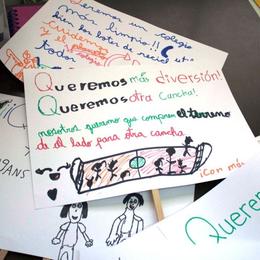 Queremos un colegio
más limpio!!
bien los botes de
Cuidemos
y el planeta
todos
Queremos más diversión!
Queremos otra Cancha!
nosotros queremos que compren el terreno
de al lado para otra cancha
¡Con más
Quere